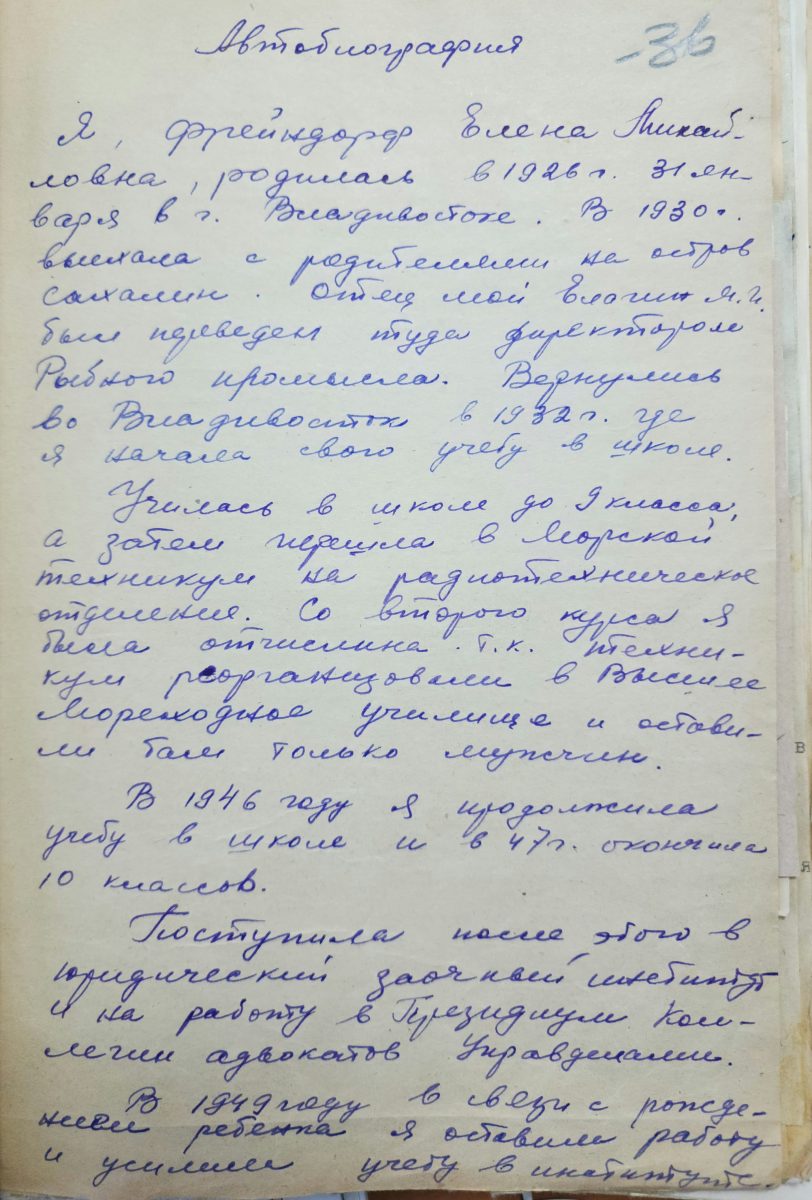 Автобиография
-36
Я, Фрейндорф Елена Михай-
ловна, родилась в 1926 г. 31 ян-
варя в г. Владивостоке. В 1930 г.
выехала с родителями на остров
Сахалин. Отец мой Елагин М.И.
был переведен туда директором
Рыбного промысла. Вернулись
во Владивосток в 1932 г. где
я начала свою учебу в школе.
Училась в школе до 9 класса,
а затем перешла в Морской
техникум на радиотехническое
отделение. Со второго курса я
была отчислина. т.к. техни-
кум реорганизовали в Высшее
Мореходное училище и остави-
ли там только мужчин.
В 1946 году я продолжила
учебу в школе и в 47 г. окончила
10 классов.
Поступила после этого в
юридический заочный институт
и на работу в Президиум Кол-
легии адвокатов Управделами.
В 1949 году в связи с рожде-
нием ребенка я оставила работу
и усилила учебу в институте.
в
я